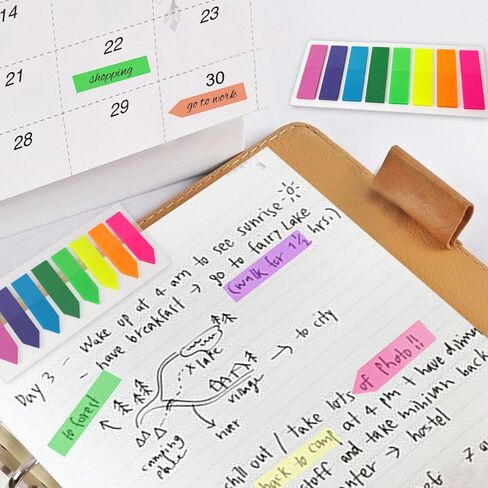 14
22
23
shopping
21
29
30
go to work
28
Day 3 - Wake up at 4 am to see sunrise
- have breakfast → go to fairy Lake
(walk for 1 1/2 hrs.)
→ to city
x lake
village
to forest
river
camping
place
chill out / take lots of photo!!
back to camp at 4 pm + have dinner
stuff and take minivan back
→ hostel
7 a